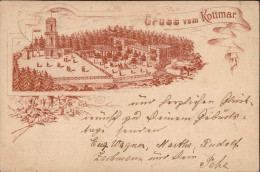 Gruss vom Kottmar.
und herzlichen Glück-
wunsch zu Deinem Geburts-
tage senden
Eug. Wagner, Martha, Rudolf,
und Dein